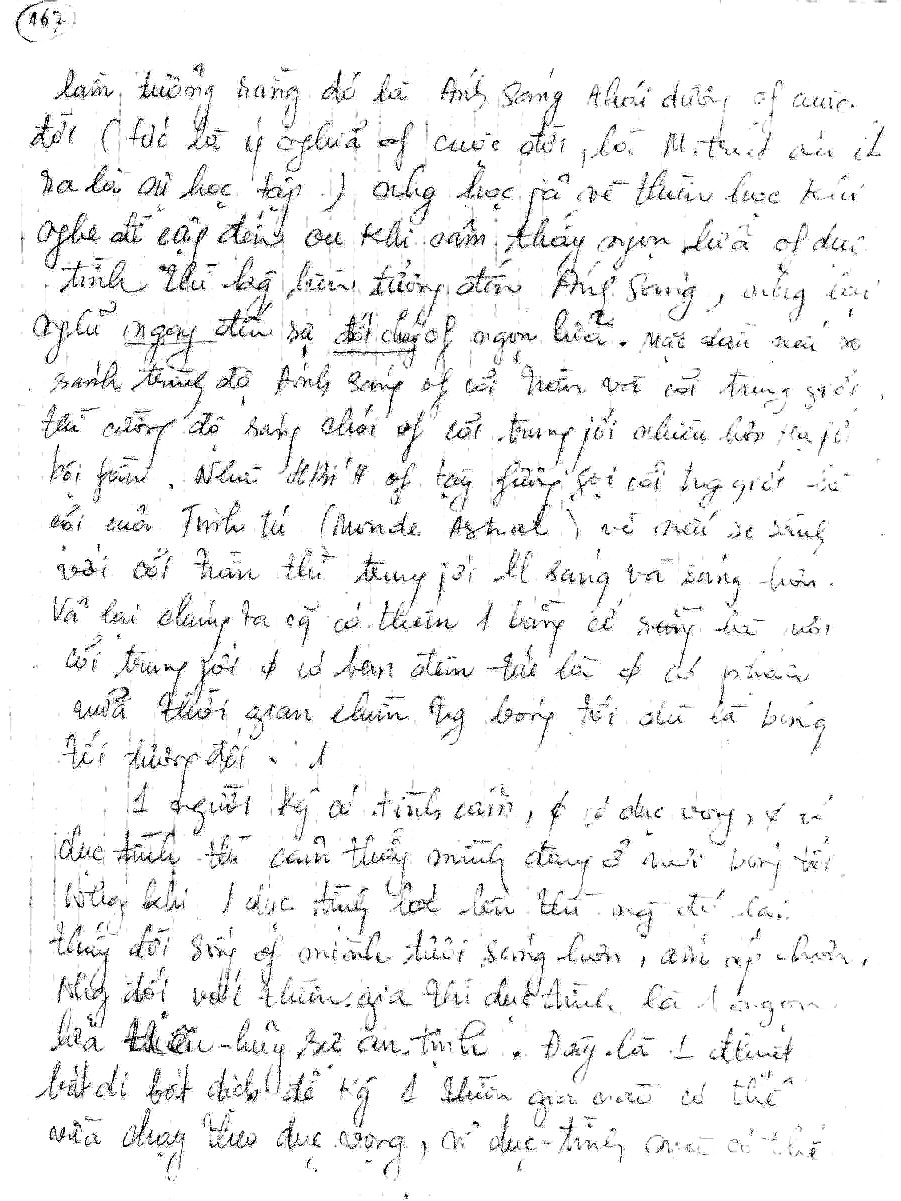 167
lầm tưởng rằng đó là Ánh sáng thái dương of cuộc
đời (tức là ý nghĩa of cuộc đời, là
ra là sự học tập) nhg học jả về thiền học khi
nghe đề cập đến or khi cảm thấy ngọn lửa of dục
tình thì liên tưởng đến Ánh Sáng, nhưng lại
nghĩ ngay đến sự đốt cháy of ngọn lửa. Mặc dầu nếu so
sánh trình độ Ánh sáng of cõi trần và cõi trung giới
thì cường độ sáng chói of cõi trung jới nhiều hơn
cõi trần. Nhà of tây fương gọi cõi trg giới là
cõi của Tinh tú (Monde Astral) vì nếu so sánh
với cõi trần thì trung jới sáng và sáng hơn.
Vả lại chúng ta cg có thêm 1 bằng cớ rằng là với
cõi trung jới ȼ có ban đêm tức là ȼ có phân
nửa thời gian chìm trg bóng tối dù là bóng
tối tương đối. 1
1 người ký có tình cảm, ȼ có dục vọng, ȼ có
dục tình thì cảm thấy mình đang ở nơi bóng tối
Nhg khi 1 dục tình lên thì ng đó lại
thấy đời sống of mình tươi sáng hơn, ấm áp hơn,
Nhg đối với thiền gia thì dục tình là 1 ngọn
lửa thiêu-hủy sự an tịnh. Đây là 1
bất di bất dịch để 1 thiền gia nào có thể
vừa chạy theo dục vọng, dục-tình mà có thể